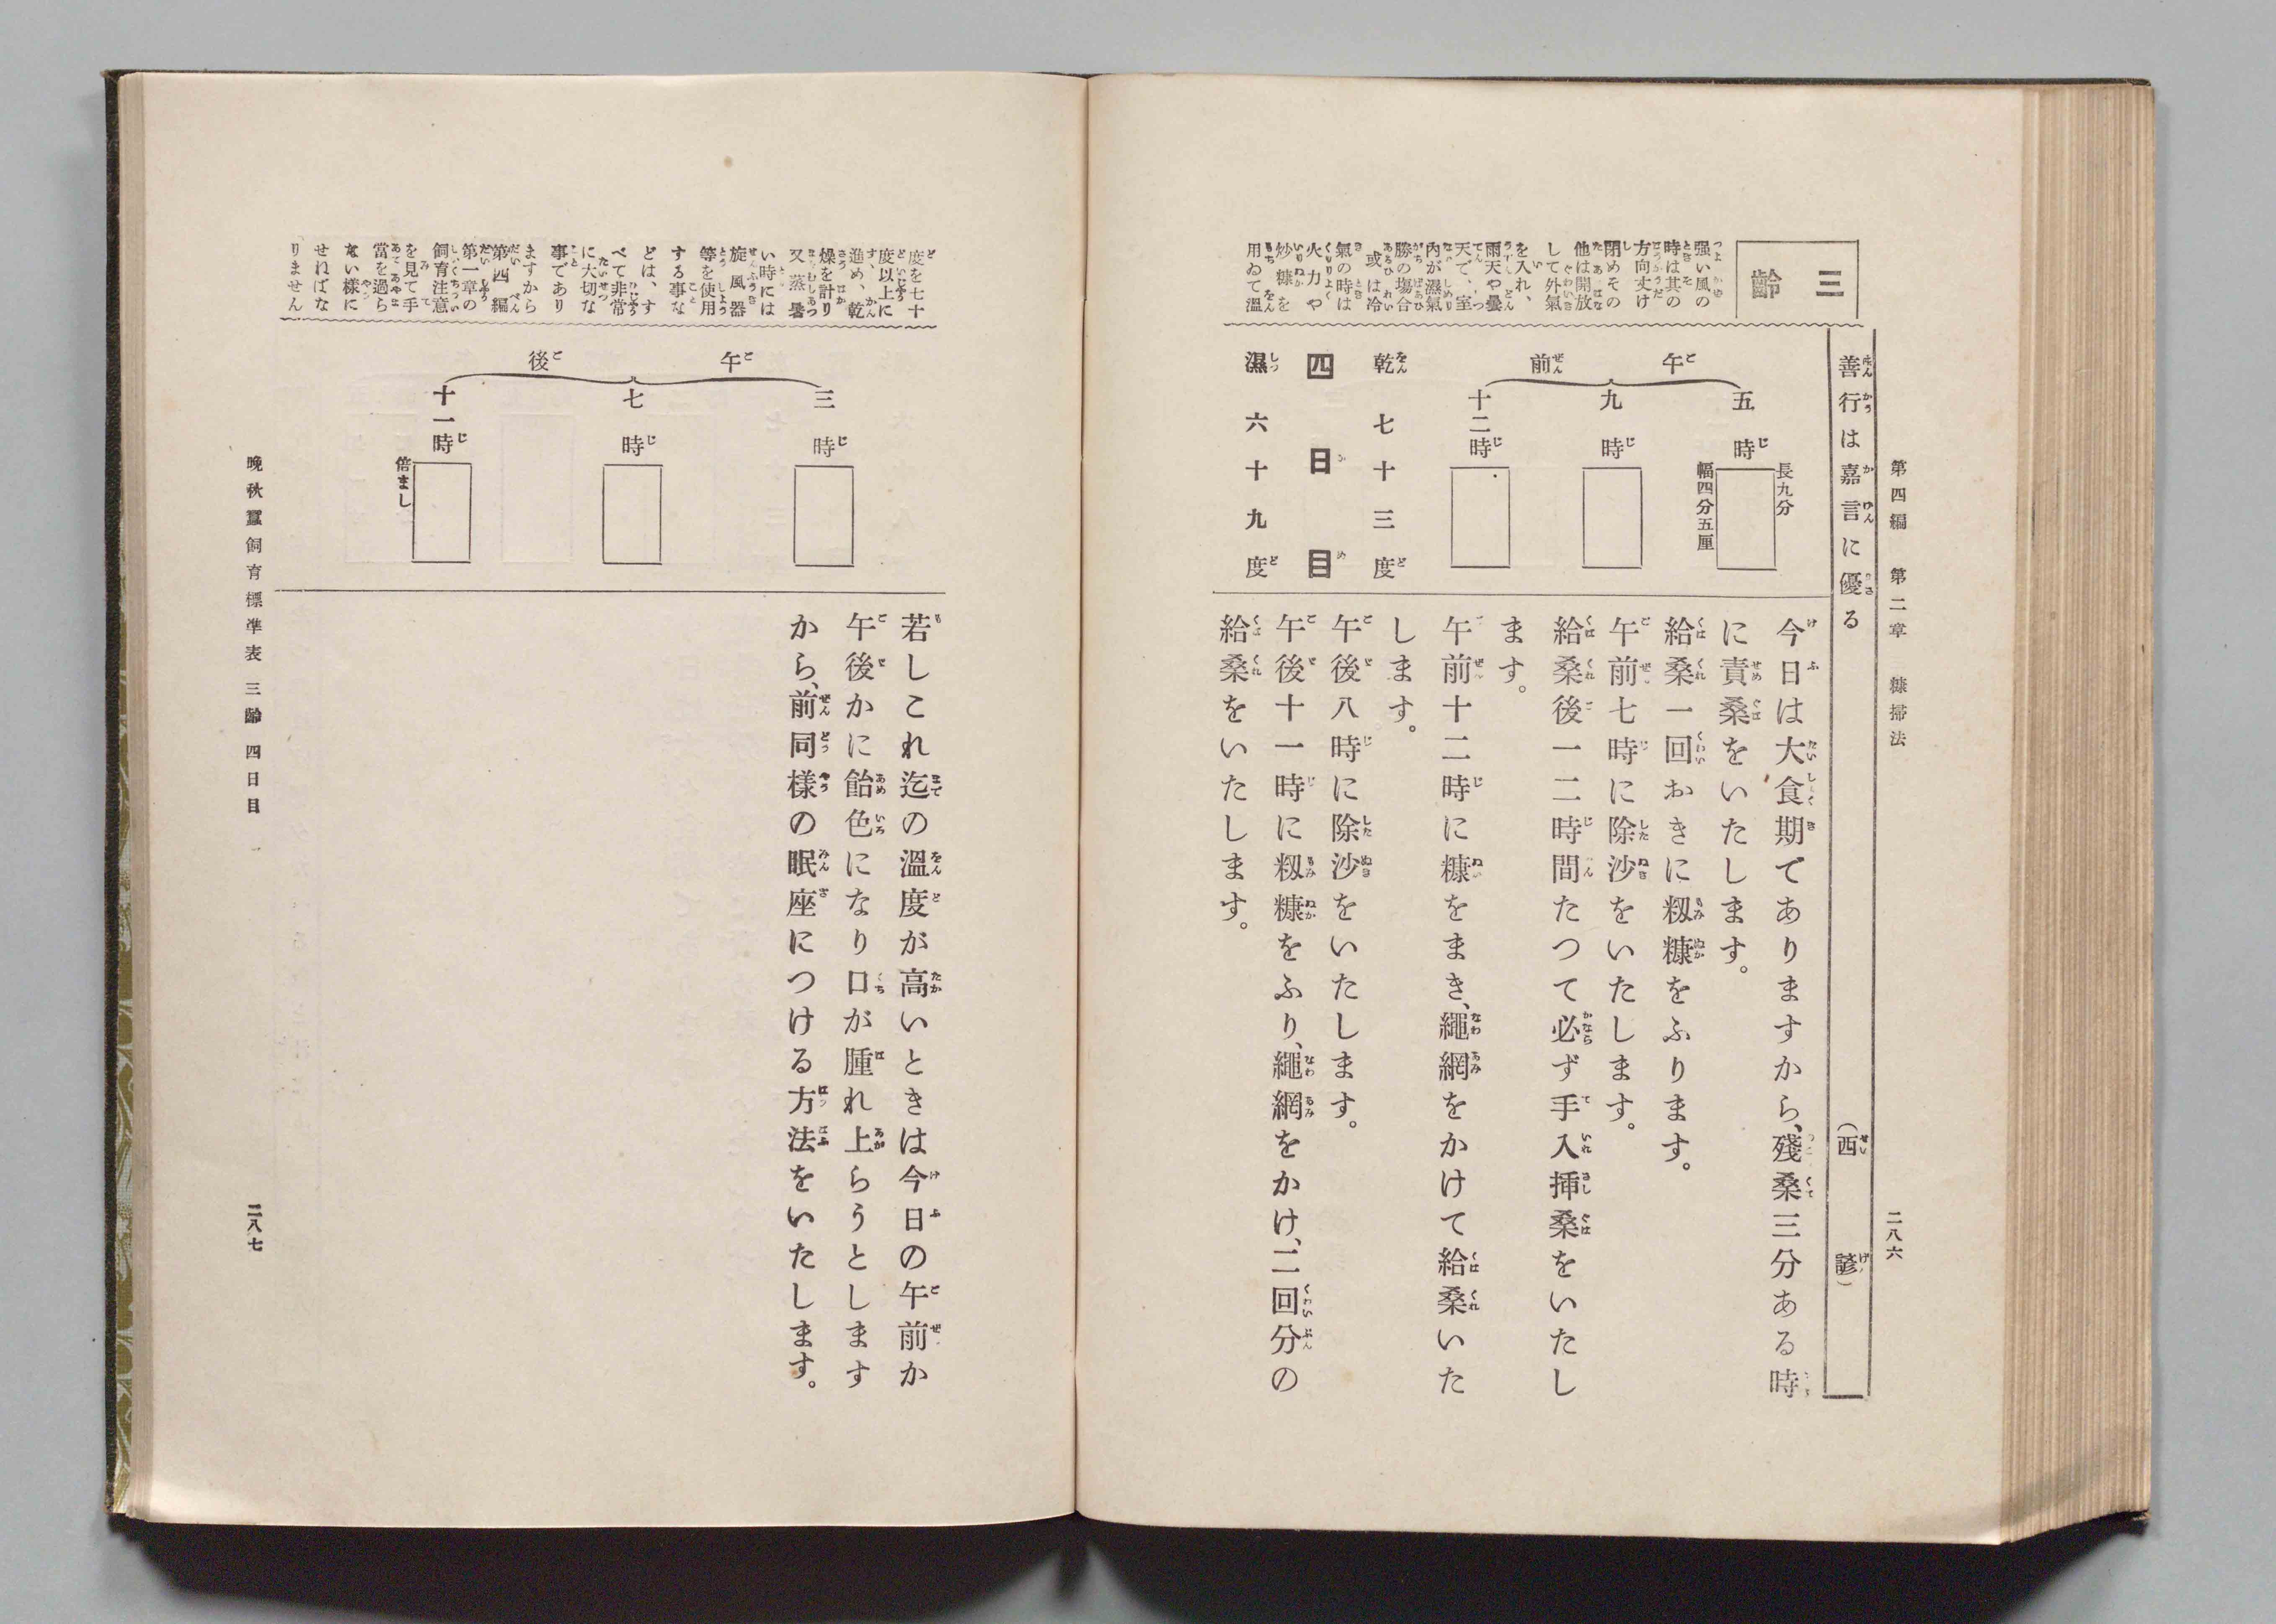 第四編　第二章　糠掃法
二八六
善行は嘉言に優る　（西諺）
三齡
强い風の
時は其の
方向丈け
閉めその
他は開放
して外氣
を入れ、
雨天や曇
天で、室
內が濕氣
勝の場合
或は冷
氣の時は
火力や
炒糠を
用ゐて溫
午前
五時
長九分
幅四分五厘
九時
十二時
乾七十三度
四日目
濕六十九度
今日は大食期でありますから、殘桑三分ある時
に責桑をいたします。
給桑一回おきに籾糠をふります。
午前七時に除沙をいたします。
給桑後一二時間たつて必ず手入揷桑をいたし
ます。
午前十二時に糠をまき、繩網をかけて給桑いた
します。
午後八時に除沙をいたします。
午後十一時に籾糠をふり、繩網をかけ、二回分の
給桑をいたします。
度を七十
度以上に
進め、乾
燥を計り
又蒸暑
い時には
旋風器
等を使用
する事な
どは、す
べて非常
に大切な
事であり
ますから
第四編
第一章の
飼育注意
を見て手
當を過ら
ない樣に
せねばな
りません
午後
三時
七時
十一時
倍まし
若しこれ迄の溫度が高いときは今日の午前か
午後かに飴色になり口が腫れ上らうとします
から、前同樣の眠座につける方法をいたします。
晩秋蠶飼育標準表　三齡　四日目
二八七